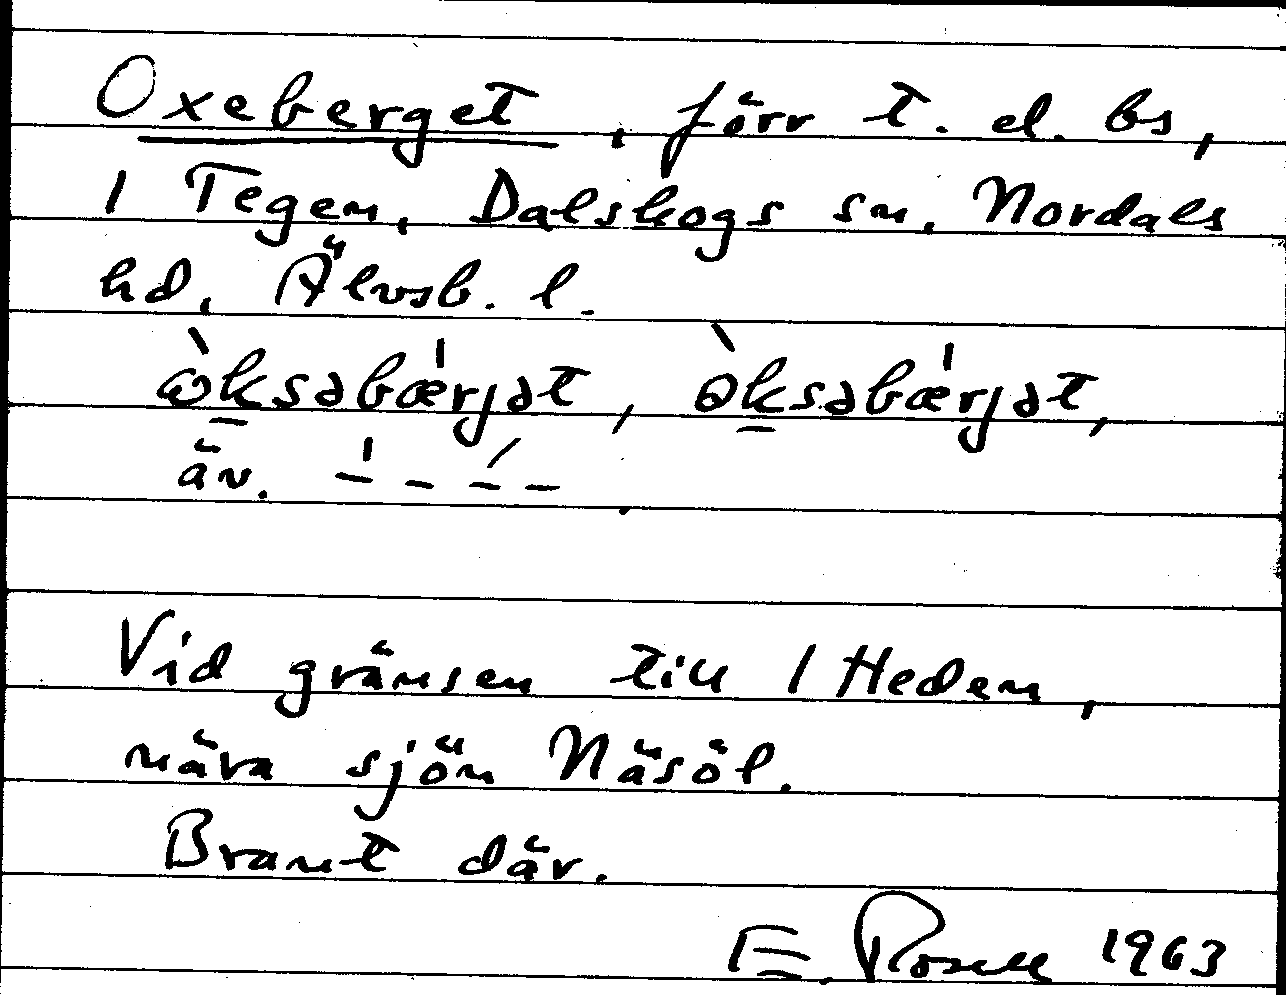 Oxeberget, förr t. el. bs,
/ Tegen, Dalskogs sn, Nordals
hd, Älvsb. l.
ὼksəbæ̍rjət, òksəbæ̍rjət,
äv. –̍ – –́ – .
Vid gränsen till / Heden,
nära sjön Näsöl.
Brant där.
E. Rosell 1963